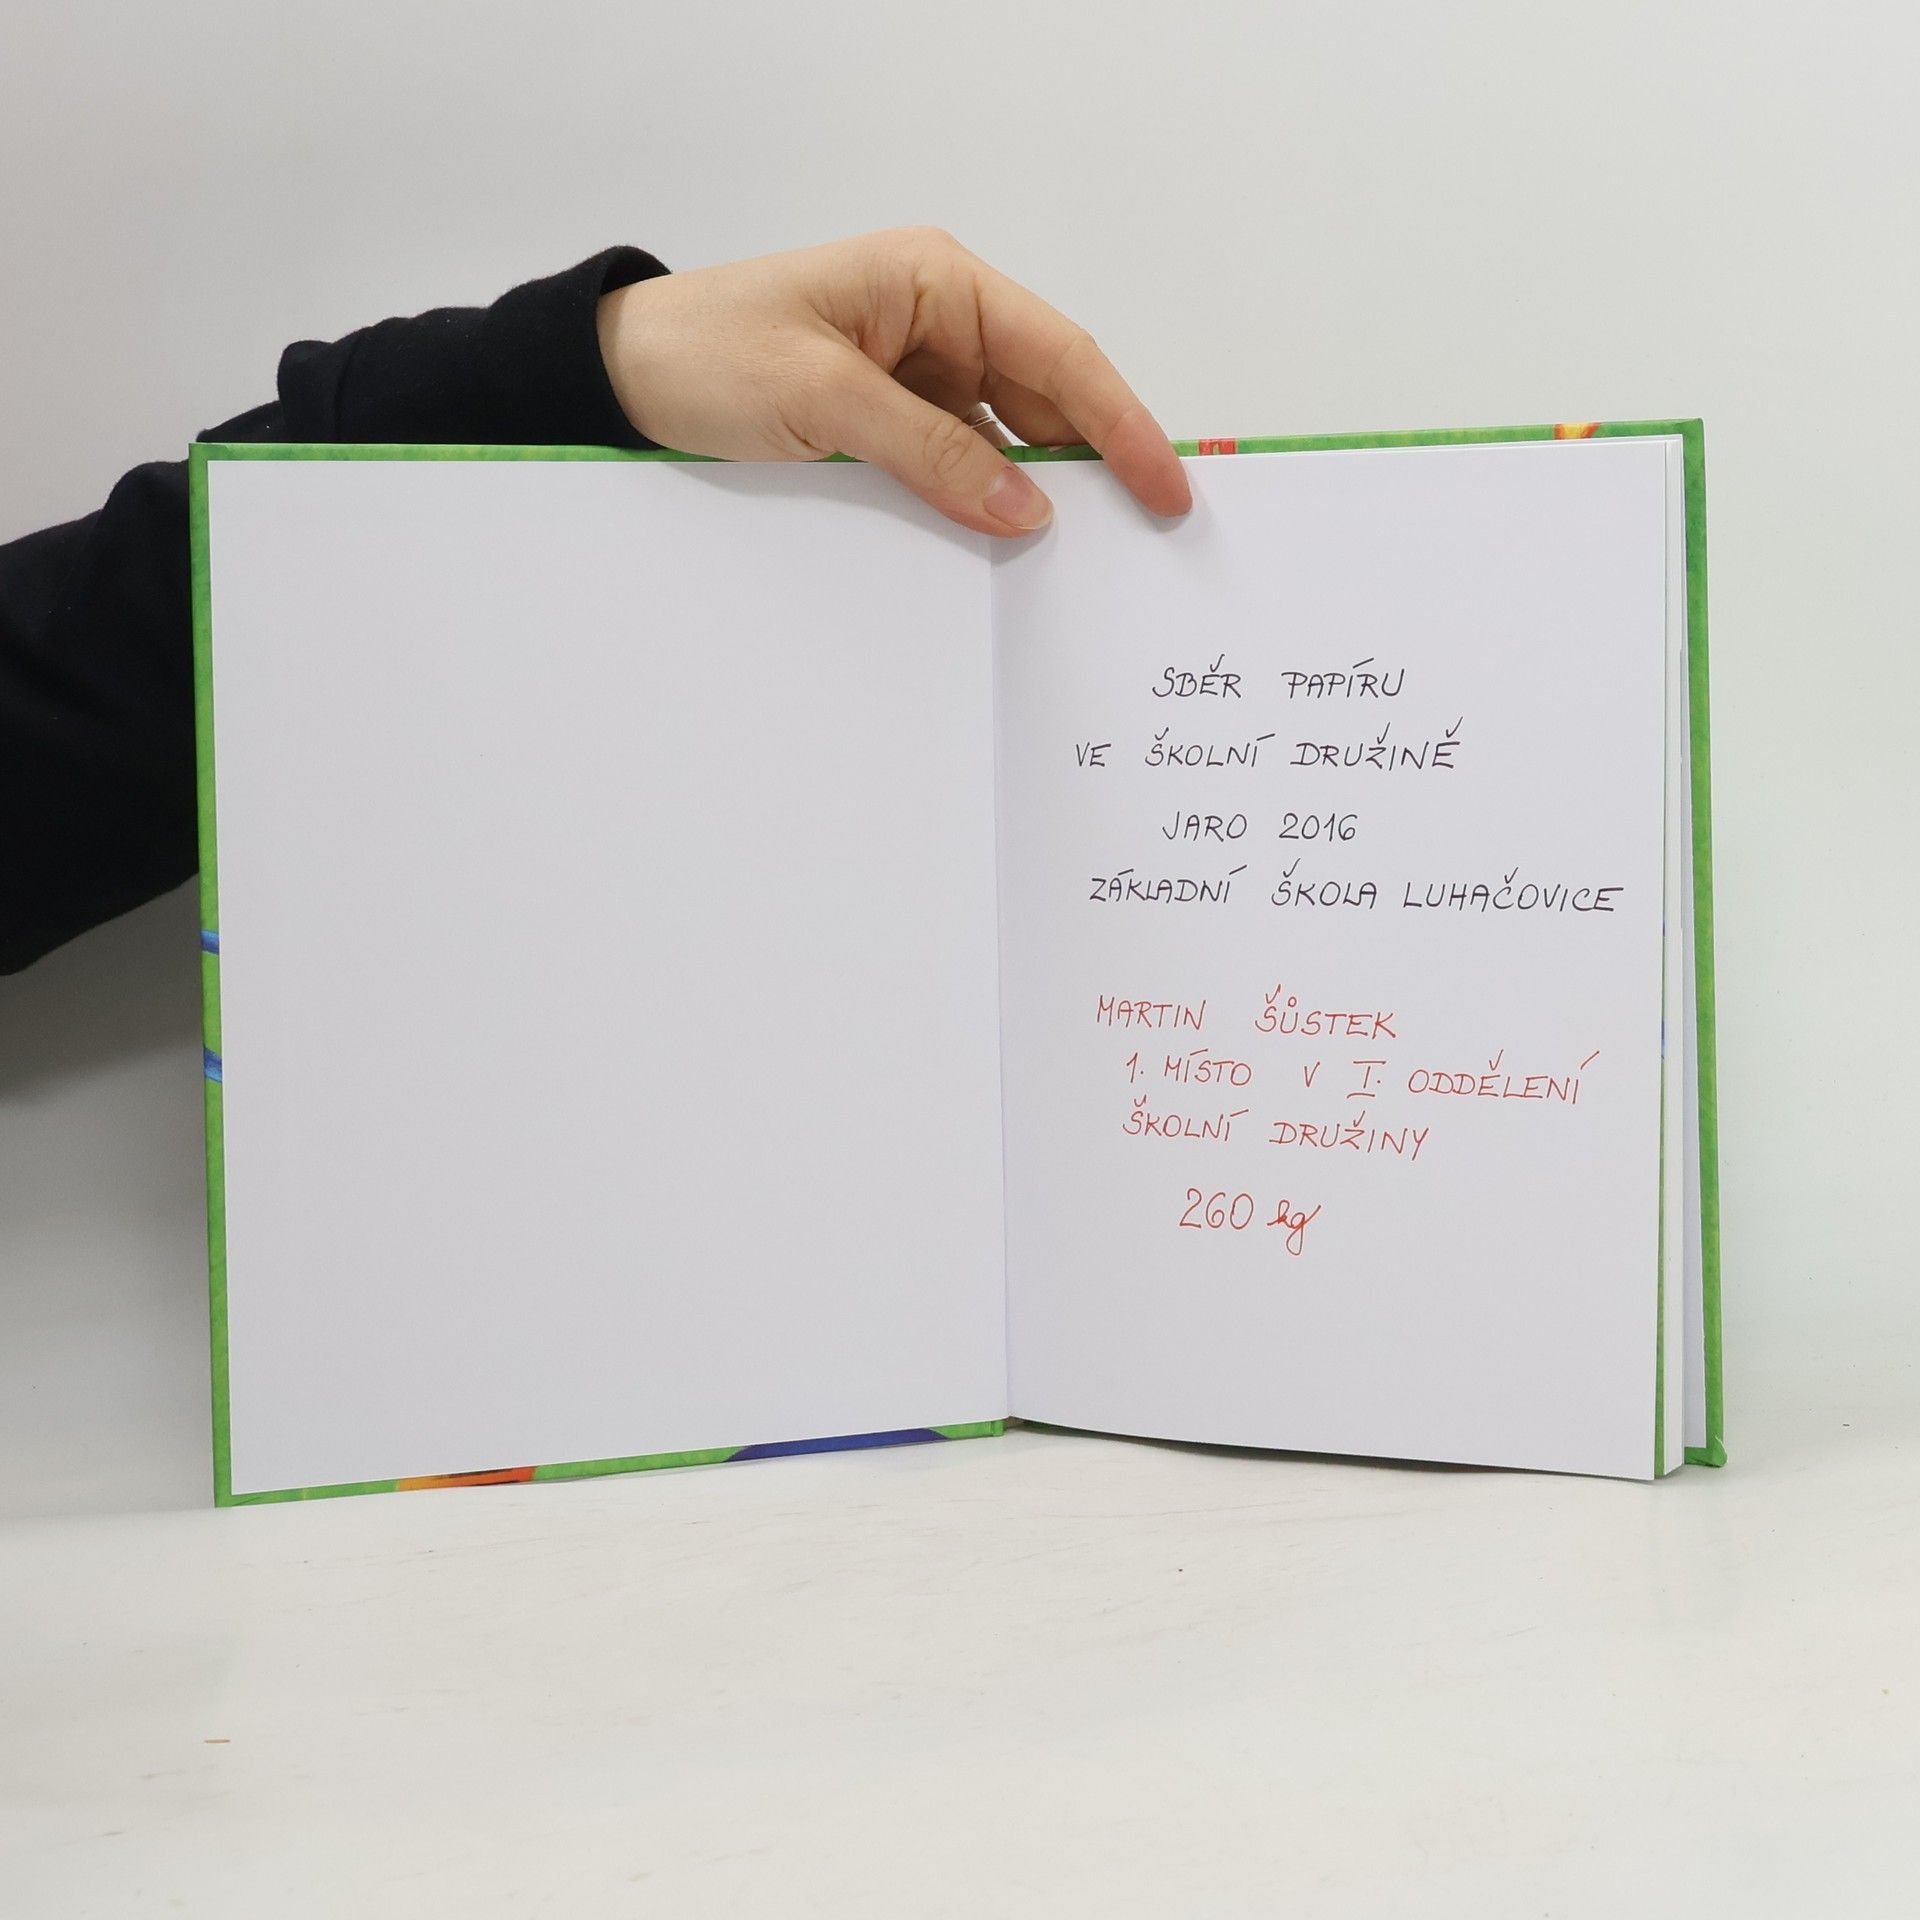 SBĚR PAPÍRU
VE ŠKOLNÍ DRUŽINĚ
JARO 2016
ZÁKLADNÍ ŠKOLA LUHAČOVICE
MARTIN ŠŮSTEK
1. MÍSTO V I. ODDĚLENÍ
ŠKOLNÍ DRUŽINY
260 kg